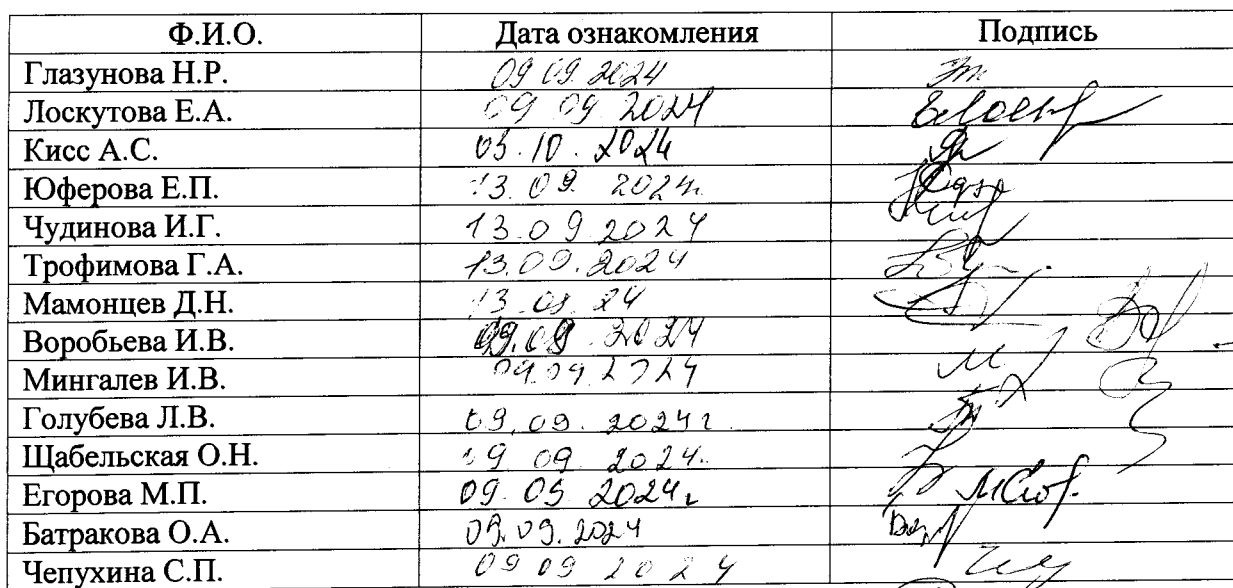 Ф.И.О. Дата ознакомления Подпись
Глазунова Н.Р. 09 09 2024
Лоскутова Е.А. 09 09 2024
Кисс А.С. 03.10.2024
Юферова Е.П. 13.09.2024г.
Чудинова И.Г. 13.09.2024
Трофимова Г.А. 13.09.2024
Мамонцев Д.Н. 13.09.24
Воробьева И.В. 09.09.2024
Мингалев И.В. 09.09.2024
Голубева Л.В. 09.09.2024г
Щабельская О.Н. 09 09 2024.
Егорова М.П. 09.09 2024г
Батракова О.А. 09.09.2024
Чепухина С.П. 09 09 2024